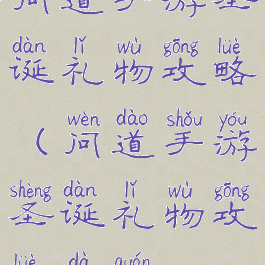 问道手游圣
dàn lǐ wù gōng lüè
诞礼物攻略
wèn dào shǒu yóu
（问道手游
shèng dàn lǐ wù gōng
圣诞礼物攻
lüè dà quán